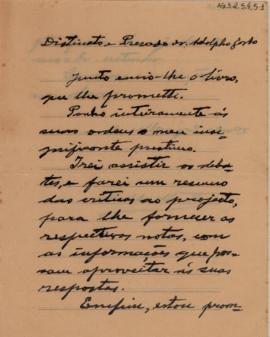 Distincto e Presado dr. Adolpho Gordo
Junto envio-lhe o livro,
que lhe prometti.
Ponho inteiramente ás
suas ordens o meu insi-
gnificante prestimo.
Irei assistir os deba-
tes, e farei um resumo
das criticas ao projecto,
para lhe fornecer as
respectivas notas, com
as informações que pos-
sam aproveitar ás suas
respostas.
Emfim, estou prom-